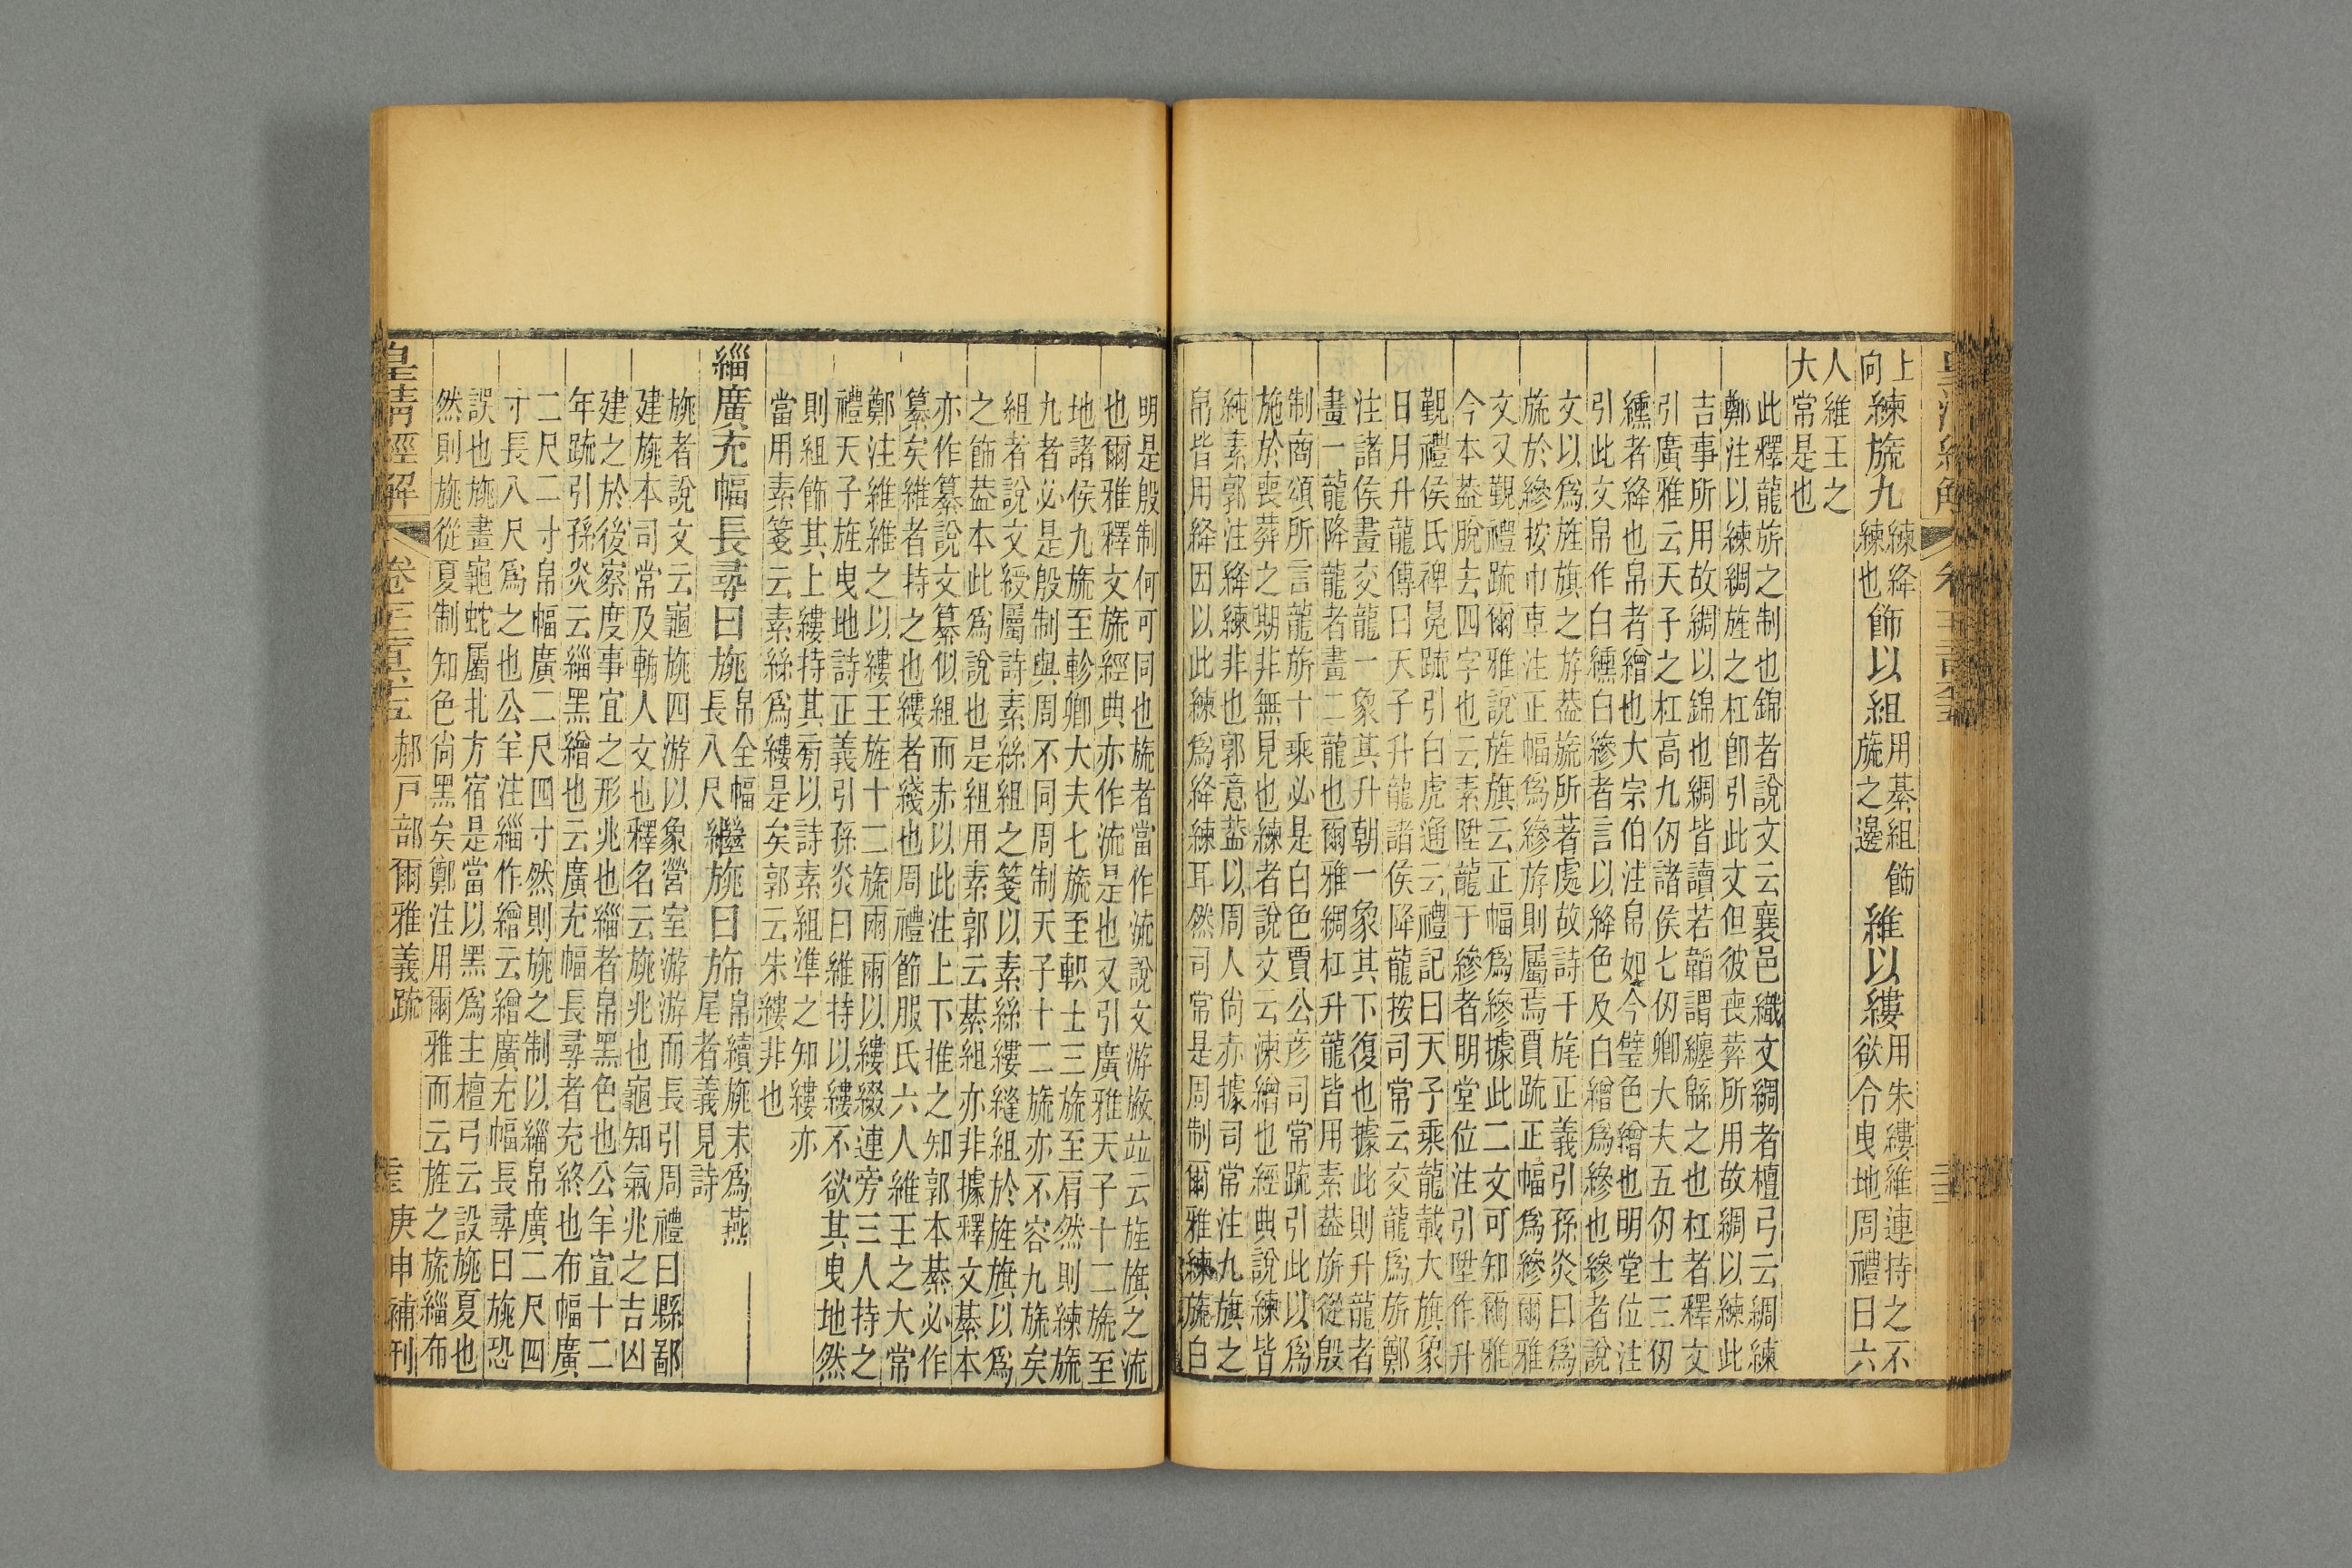 上
向
練旒九
練絳
練也
飾以組
用綦組飾
旒之邊
維以縷
用朱縷維連持之不
欲令曳地周禮曰六
人維王之
大常是也
此釋龍旂之制也錦者說文云襄邑織文綢者檀弓云綢練
鄭注以練綢旌之杠卽引此文但彼喪葬所用故綢以練此
吉事所用故綢以錦也綢皆讀若韜謂纏緜之也杠者釋文
引廣雅云天子之杠高九仞諸侯七仞卿大夫五仞士三仞
纁者絳也帛者繒也大宗伯注帛如今璧色繒也明堂位注
引此文帛作白纁白縿者言以絳色及白繒爲縿也縿者說
文以爲旌旗之斿葢旒所著處故詩干旄正義引孫炎曰爲
旒於縿按巾車注正幅爲縿斿則屬焉賈疏正幅爲縿爾雅
文又覲禮疏爾雅說旌旗云正幅爲縿據此二文可知爾雅
今本葢脫去四字也云素陞龍于縿者明堂位注引陞作升
覲禮侯氏裨冕疏引白虎通云禮記曰天子乘龍載大旗象
日月升龍傳曰天子升龍諸侯降龍按司常云交龍爲旂鄭
注諸侯畫交龍一象其升朝一象其下復也據此則升龍者
畫一龍降龍者畫二龍也爾雅綢杠升龍皆用素葢旂從殷
制商頌所言龍旂十乘必是白色賈公彥司常疏引此以爲
施於喪葬之期非無見也練者說文云湅繒也經典說練皆
純素郭注絳練非也郭意葢以周人尙赤據司常注九旗之
帛皆用絳因以此練爲絳練耳然司常是周制爾雅練旒白
明是殷制何可同也旒者當作流說文游㫍竝云旌旗之流
也爾雅釋文旒經典亦作流是也又引廣雅天子十二旒至
地諸侯九旒至軫卿大夫七旒至軹士三旒至肩然則練旒
九者必是殷制與周不同周制天子十二旒亦不容九旒矣
組者說文綬屬詩素絲組之箋以素絲縷縫組於旌旗以爲
之飾葢本此爲說也是組用素郭云綦組亦非據釋文綦本
亦作纂說文纂似組而赤以此注上下推之知郭本綦必作
纂矣維者持之也縷者綫也周禮節服氏六人維王之大常
鄭注維維之以縷王旌十二旒兩兩以縷綴連旁三人持之
禮天子旌曳地詩正義引孫炎曰維持以縷不欲其曳地然
則組飾其上縷持其㫄以詩素組準之知縷亦
當用素箋云素絲爲縷是矣郭云朱縷非也
緇廣充幅長尋曰旐
帛全幅
長八尺
繼旐曰旆
帛續旐末爲燕
尾者義見詩
旐者說文云龜旐四游以象營室游游而長引周禮曰縣鄙
建旐本司常及輈人文也釋名云旐兆也龜知氣兆之吉凶
建之於後察度事宜之形兆也緇者帛黑色也公羊宣十二
年疏引孫炎云緇黑繒也云廣充幅長尋者充終也布幅廣
二尺二寸帛幅廣二尺四寸然則旐之制以緇帛廣二尺四
寸長八尺爲之也公羊注緇作繒云繒廣充幅長尋曰旐恐
誤也旐畫龜蛇屬北方宿是當以黑爲主檀弓云設旐夏也
然則旐從夏制知色尙黑矣鄭注用爾雅而云旌之旒緇布
皇淸經解
郝戸部爾雅義疏
庚申補刊